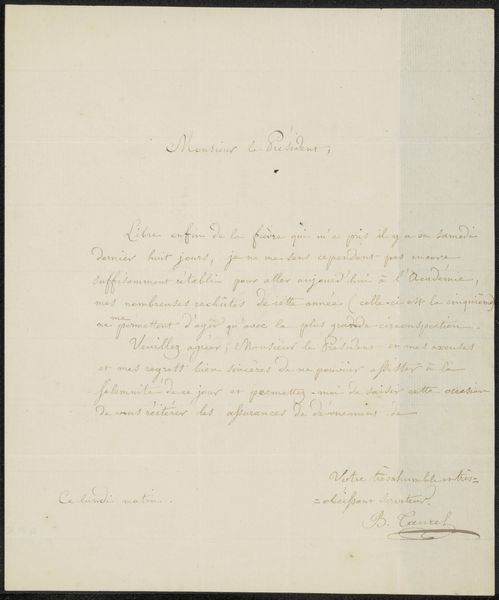 Monsieur le Président,
Libre enfin de la fièvre qui m'a pris il y a eu samedi
dernier huit jours, je ne me sens cependant pas encore
suffisamment rétabli pour aller aujourd'hui à l'Académie,
mes nombreuses rechûtes de cette année (celle-ci est la cinquième)
ne me permettent d'agir qu'avec la plus grande circonspection.
Veuillez agréer, Monsieur le Président et mes excuses
et mes regrets bien sincères de ne pouvoir assister à la
solemnité de ce jour et permettez-moi de saisir cette occasion
de vous réitérer les assurances de dévouement de
Votre très humble et très=
=obéissant serviteur.
Ce lundi matin.
B. Taurel